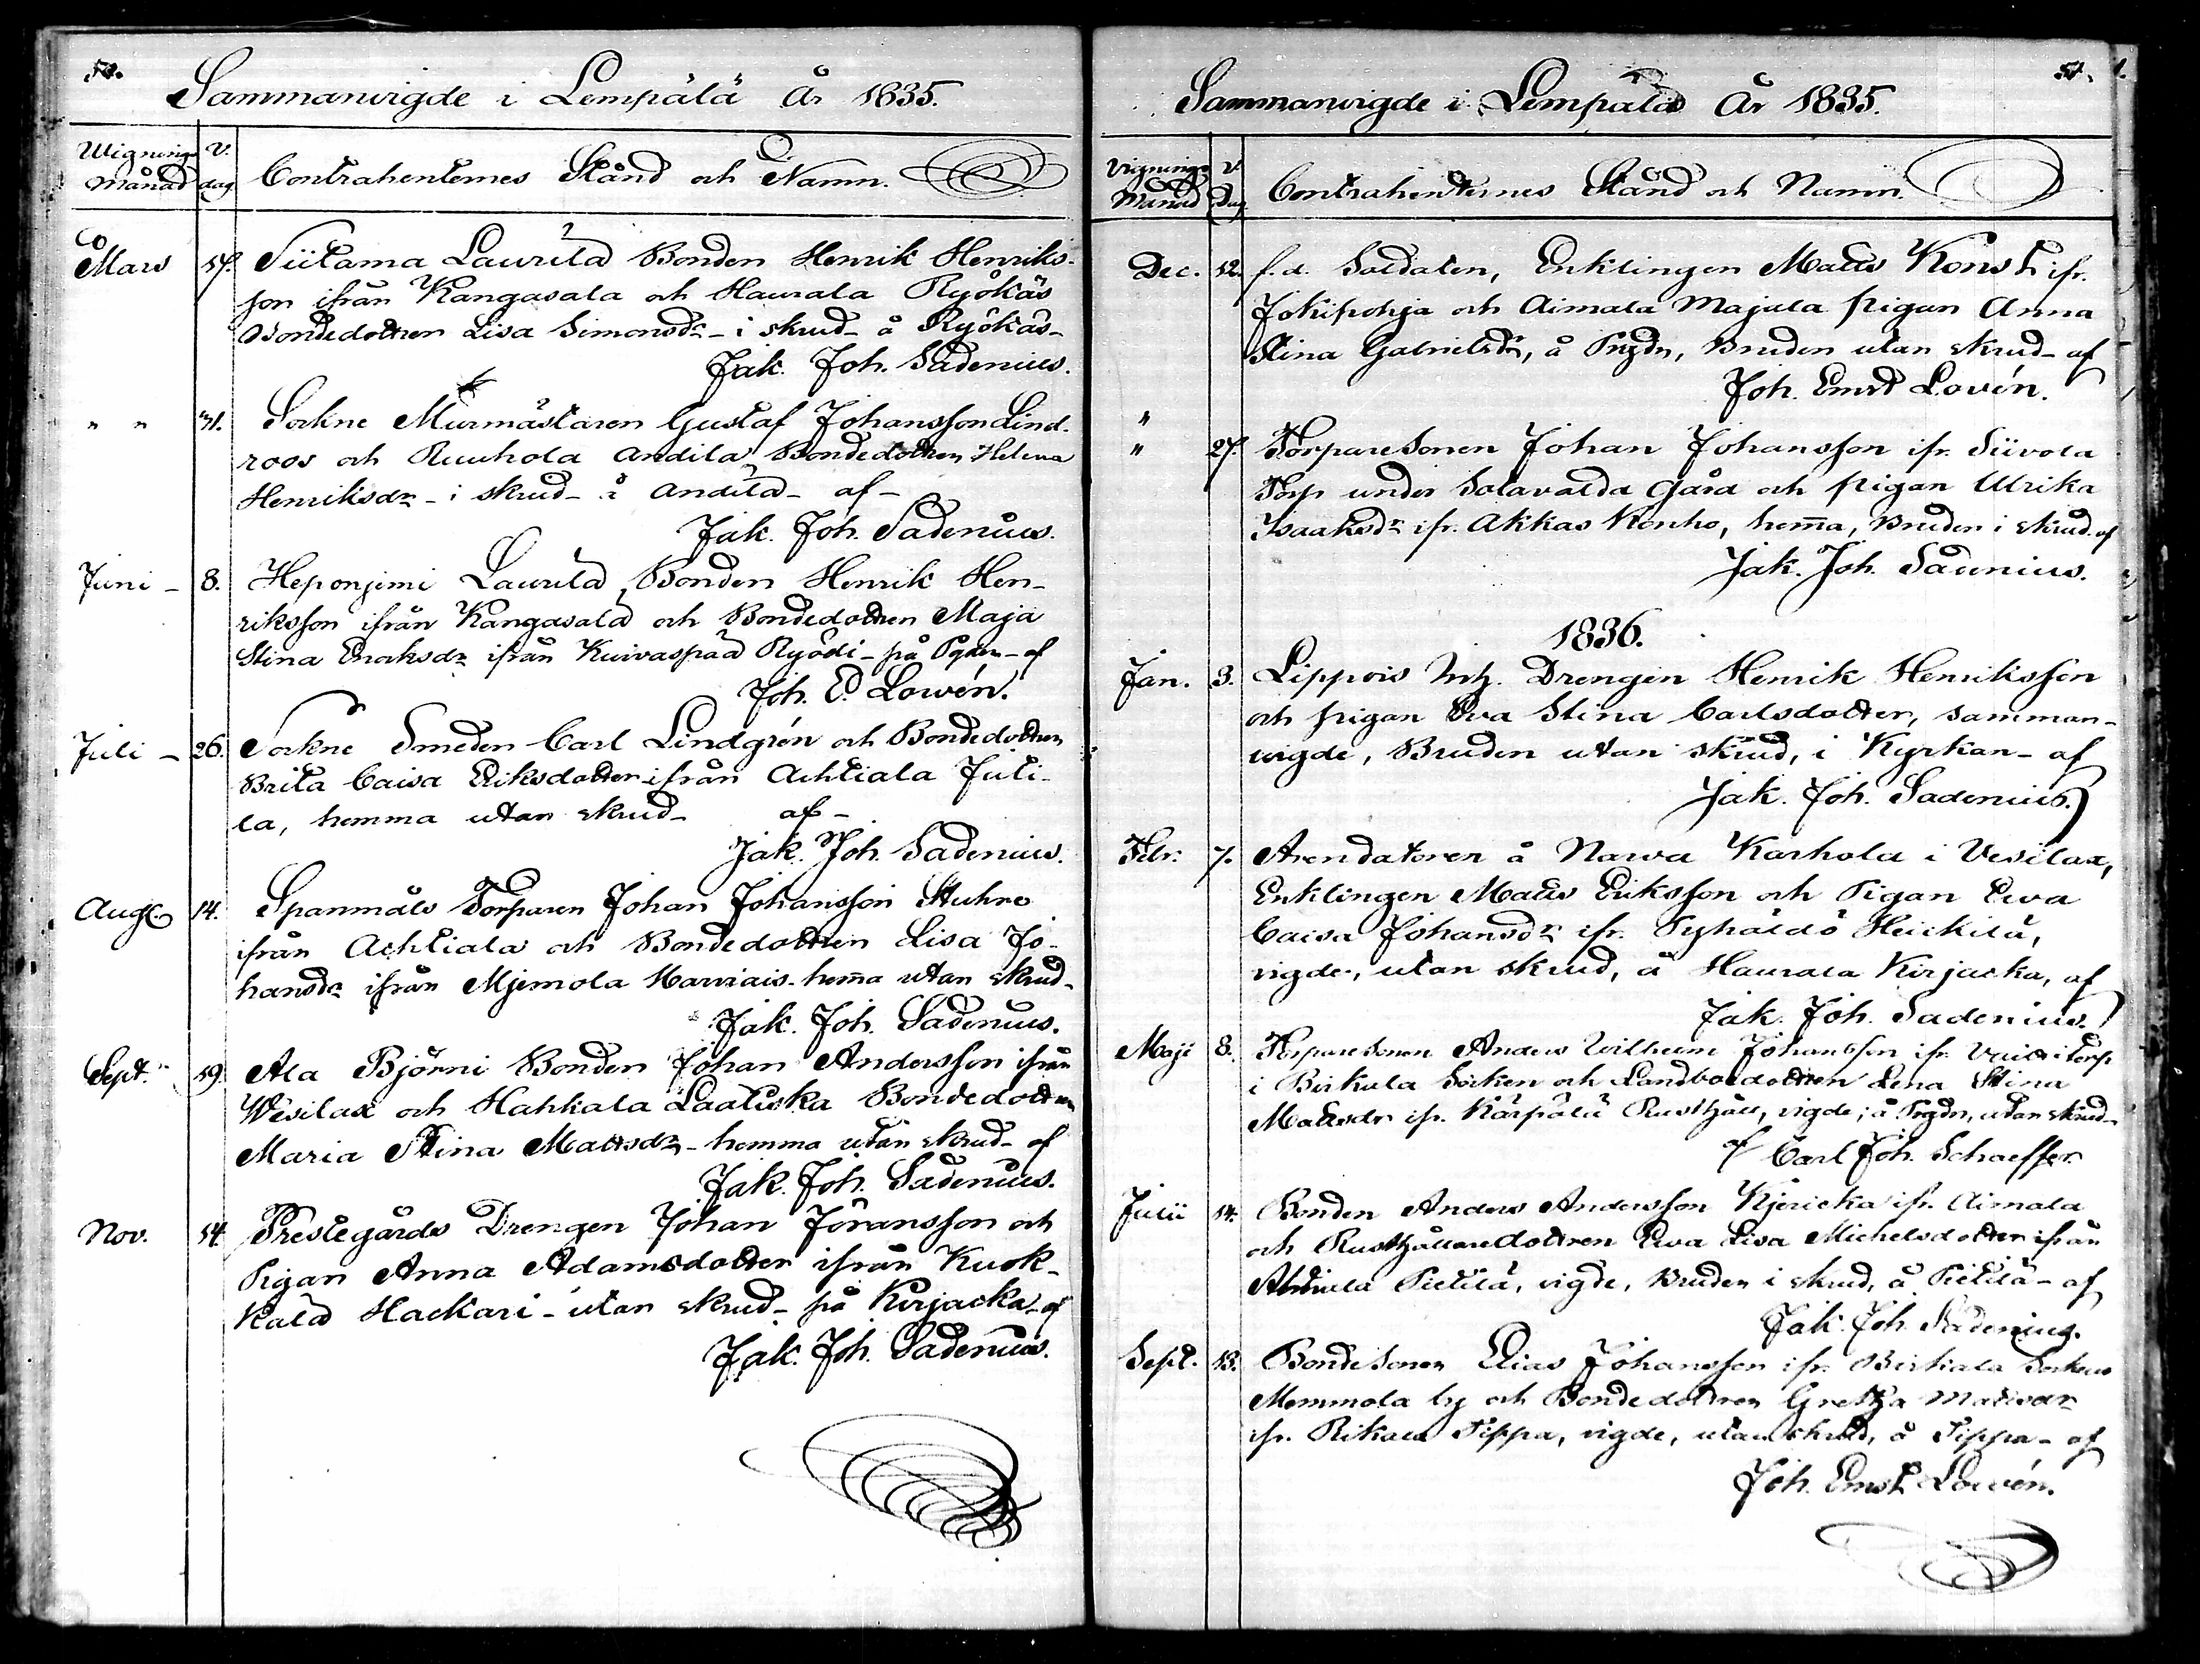 50.
Sammanvigde i Lempälä År 1835.
Wignings V.
Månad dag Contrahenternes Stånd och Namn.
Mars 17. Siitama Laurila Bonden Henrik Henriks-
son ifrån Kangasala och Haurala Ryökäs
Bondedottren Lisa Simonsdr - i skrud - å Ryökäs -
Jak. Joh. Sadenius.
" " 31. Sockne Murmästaren Gustaf Johansson Lind-
roos och Ruuhola Andila Bondedottren Helena
Henriksdr - i skrud - å Andila - af -
Jak. Joh. Sadenius.
Juni - 8. Heponjemi Laurila Bonden Henrik Hen-
riksson ifrån Kangasala och Bondedottren Maja
Stina Ericksdr ifrån Kuivaspää Ryödi - på - af
Joh. E. Lowén.
Juli - 26. Sockne Smeden Carl Lindgrén och Bondedottren
Brita Caisa Eriksdotter ifrån Achtiala Juti-
la, hemma utan skrud - af -
Jak. Joh. Sadenius.
Aug. 14. Spanmåls Torparen Johan Johansson Stuhre
ifrån Achtiala och Bondedottren Lisa Jo-
hansdr ifrån Mjemola Marriais - hem̄a utan skrud -
Jak. Joh. Sadenius.
Sept. 19. Ala Björni Bonden Johan Andersson ifrån
Wesilax och Hahkala Laatuska Bondedottren
Maria Stina Mattsdr - hemma utan skrud - af
Jak. Joh. Sadenius.
Nov. 14. Prestegårds Drengen Johan Jöransson och
Pigan Anna Adamsdotter ifrån Kuok-
kala Hackari - utan skrud - på Kirjacka - af
Jak. Joh. Sadenius.
51.
Sammanvigde i Lempälä År 1835.
Vignings V.
Månad Dag Contrahenternes Stånd och Namn.
Dec. 12. f.d. Soldaten, Enklingen Matts Konst ifr.
Jokipohja och Aimala Majala pigan Anna
Stina Gabrielsdr, å Prgdn, Bruden utan skrud - af
Joh. Ernst Lovén.
"
" 27. Torparesonen Johan Johansson ifr. Siivola
Torp under Solavalda Gård och pigan Ulrika
Isaaksdr ifr. Akkas Konho, hem̄a, Bruden i skrud af
Jak. Joh. Sadenius.
1836.
Jan. 3. Lippois Drengen Henrik Henriksson
och pigan Eva Stina Carlsdotter, samman-
vigde, Bruden utan skrud, i Kyrkan - af
Jak. Joh. Sadenius.
Febr. 7. Arendatoren å Narva Karhola i Vesilax,
Enklingen Matts Eriksson och Pigan Eva
Caisa Johansdr ifr. Pyhäldö Heickilä,
vigde, utan skrud, å Haurala Kirjacka, af
Jak. Joh. Sadenius.
Maji 8. Torparesonen Anders Wilhelm Johansson ifr. Torp
i Birkala Socken och Landbodottren Lena Stina
Mattsdr ifr. Kärpälä Rusthåll, vigde, å Prgdn, utan skrud -
af Carl Joh. Schaeffer
Julii 14. Bonden Anders Andersson Kjericka ifr. Aimala
och Rusthållaredottren Eva Lisa Michelsdotter ifrån
Ahtiala Pietilä, vigde, Bruden i skrud, å Pietilä - af
Jak. Joh. Sadenius.
Sept. 13. Bondesonen Elias Johansson ifr. Birkala Sockens
Mommola by och Bondedottren Gretha Mattsdr
ifr. Rikala Pippa, vigde, utan skrud, å Pippa - af
Joh. Ernst Lowén.